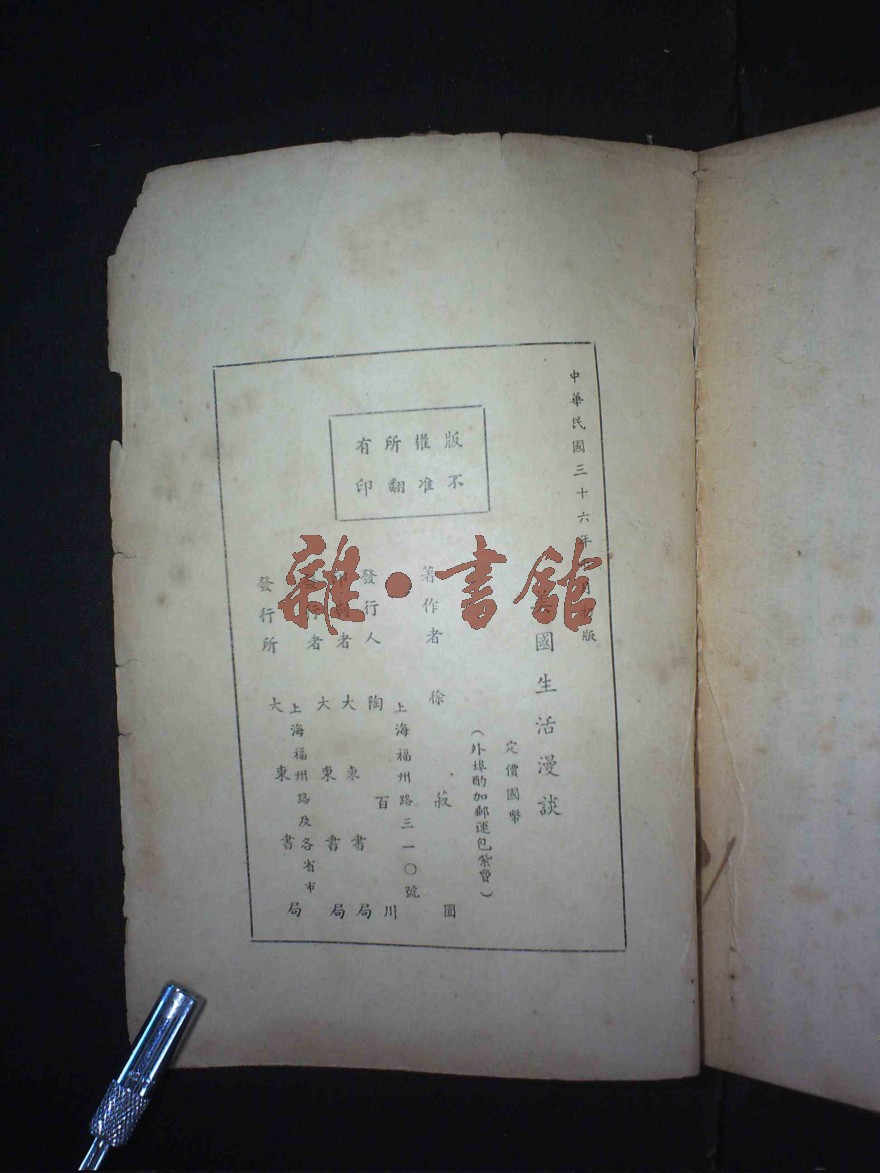 中華民國三十六年
版
國生活漫談
定價國幣
（外埠酌加郵運包紮費）
版權所有
不准翻印
著作者 徐
上海福州路三一〇號
發行人 陶百川
者 大東書局
者 大東書局
上海福州路及各省市
發行所 大東書局
雜·書館